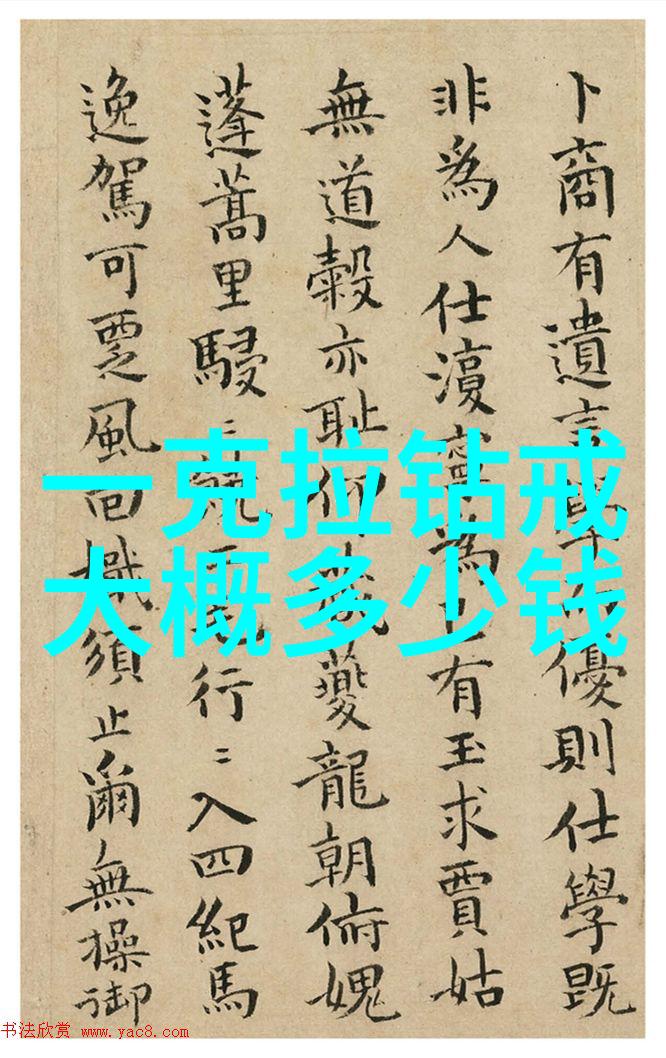 卜商有遺言學優則仕學既
非為人仕寧為有玉求賈姑
無道穀亦恥仰夔龍朝俯媿
蓬蒿里駸=行=入四紀馬
逸駕可覂風須止爾無操御
一克拉钻戒
大概多少钱
书法欣赏 www.yac8.com